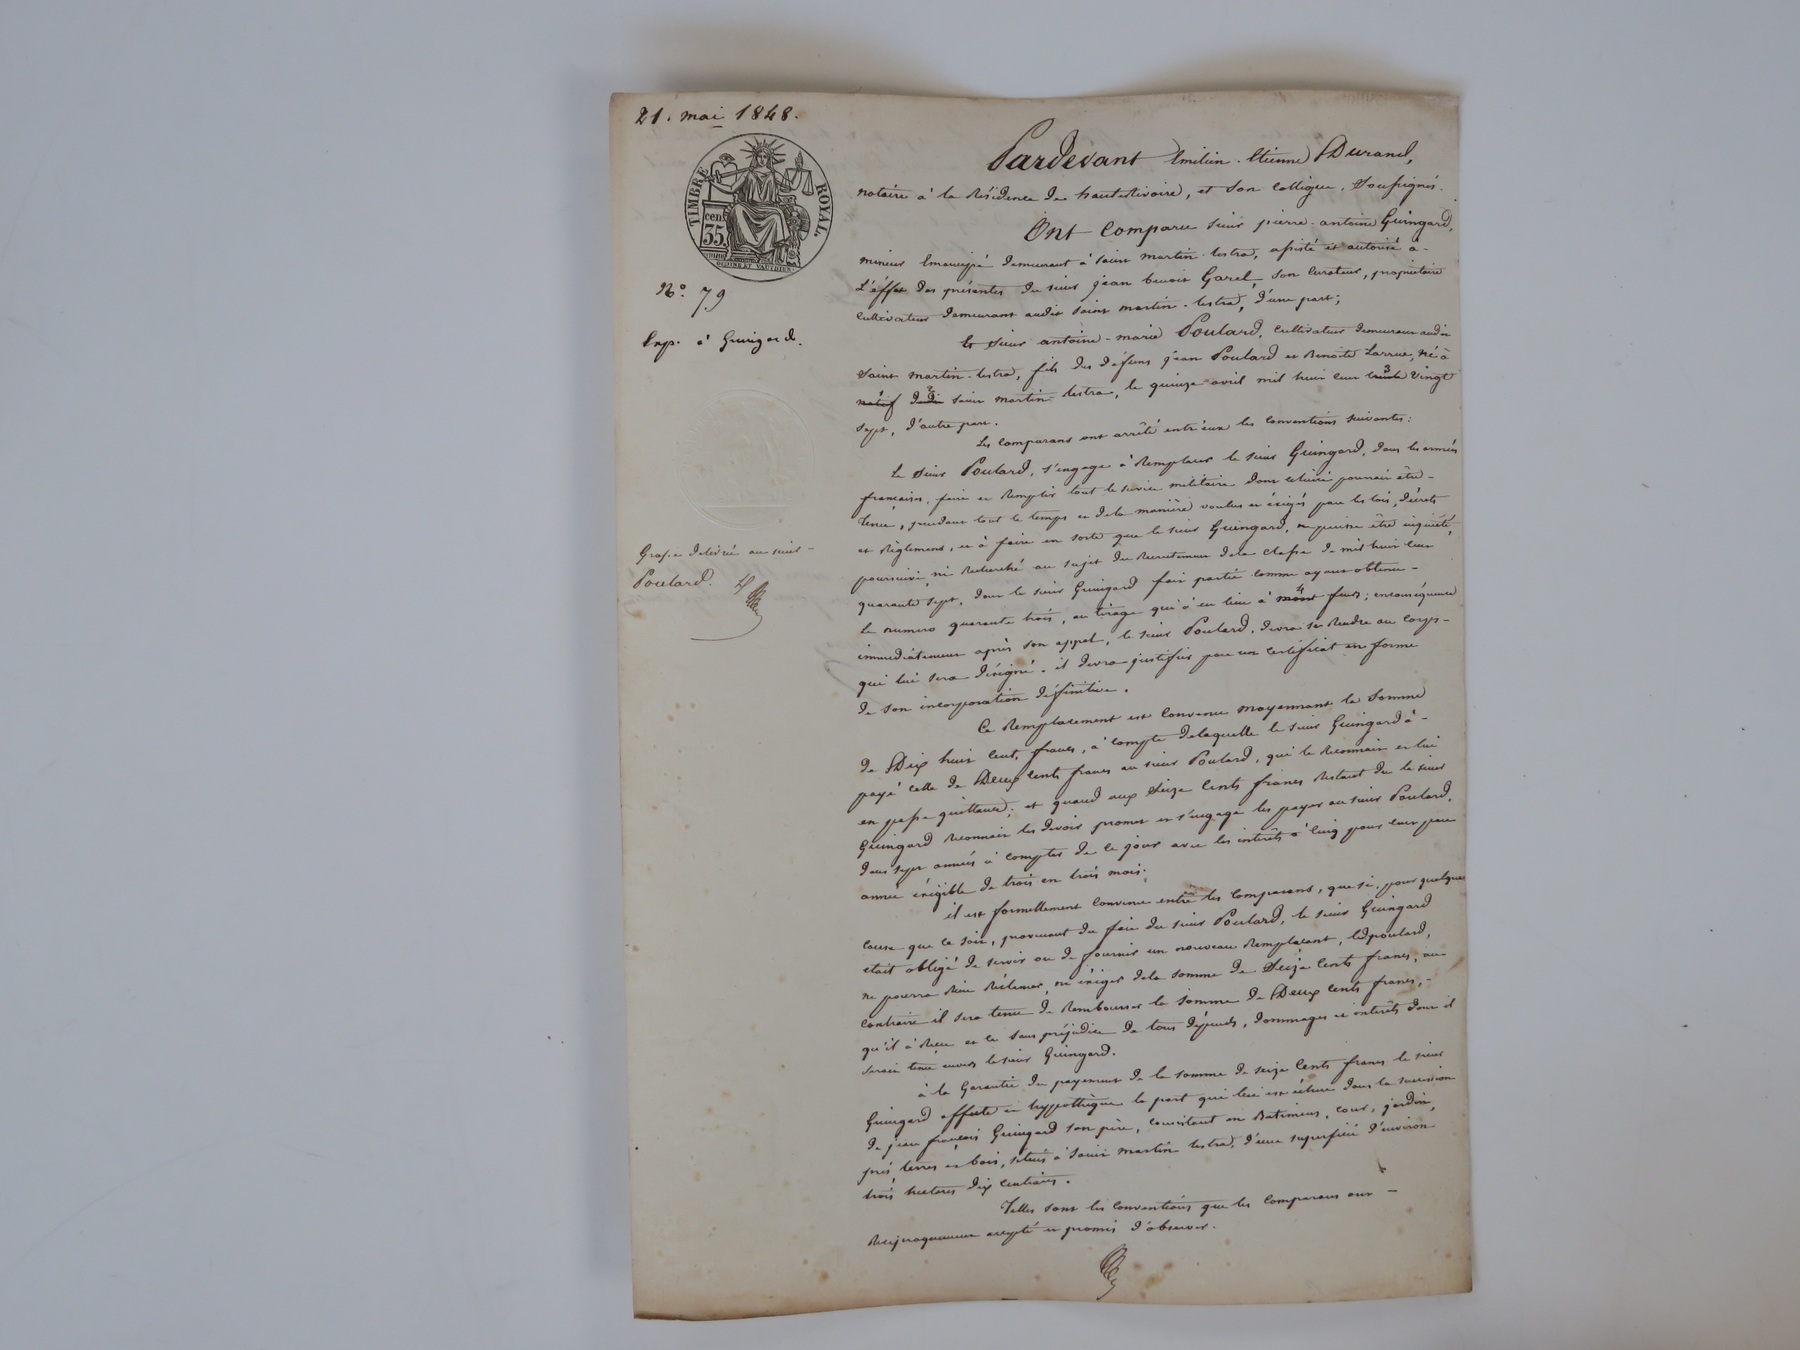 21. mai 1848.
TIMBRE ROYAL.
cen. 35.
N.° 79
Exp. à Guingard.
Grosse délivrée au sieur
Poulard.
Pardevant Emilien-Etienne Durand,
notaire à la Résidence de hauterivoire, et son collègue, Soussignés.
Ont Comparu sieur pierre-antoine Guingard,
mineur Emancipé demeurant à Saint martin-lestra, assisté et autorisé à
L'effet des présentes du sieur jean benoit Garel, son curateur, propriétaire
cultivateur demeurant audit Saint martin-lestra, d'une part;
et sieur antoine-marie Poulard, cultivateur demeurant audit
Saint martin-lestra, fils des défunts jean Poulard et Benoîte Larrue, né à
natif dudit saint martin lestra, le quinze avril mil huit cent vingt
sept, d'autre part.
Les comparans ont arrêté entr'eux les conventions suivantes:
le sieur Poulard, s'engage à Remplacer le sieur Guingard, dans les armées
françaises, faire et Remplir tout le service militaire dont celui-ci pourrait être
tenu, pendant tout le temps et de la manière voulus et éxigés par les lois, décrets
et Règlemens, et à faire en sorte que le sieur Guingard, ne puisse être inquiété,
poursuivi, ni Recherché au sujet du Recrutement de la classe de mil huit cent
quarante sept, dont le sieur Guingard fait partie comme ayant obtenu
le numero quarante trois, au tirage qui a eu lieu à feurs; enconséquence
immédiatement après son appel, le sieur Poulard, devra se Rendre au corps
qui lui sera désigné. il devra justifier par un certificat en forme
de son incorporation définitive.
Ce Remplacement est convenu moyennant la Somme
de Dix huit cent, francs, à compte delaquelle le sieur Guingard à
payé celle de Deux cents francs au sieur Poulard, qui le Reconnait et lui
en passe quittance; et quand aux Seize Cents francs Restant du le sieur
Guingard Reconnait les devoir promet et s'engage les payer au sieur Poulard,
dans sept années à compter de ce jour avec les intérêts à cinq pour cent par
année éxigible de trois en trois mois.
il est formellement convenu entre les comparans, que si, pour quelque
cause que ce soit, provenant du fait du sieur Poulard, le sieur Guingard
était obligé de servir ou de fournir un nouveau Remplaçant, led poulard,
ne pourra Rien Réclamer, ni éxiger dela somme de Seize Cents francs, au
contraire il sera tenu de Rembourser la somme de Deux cents francs,
qu'il à Reçu et ce sans préjudice de tous dépends, dommages et intérêts dont il
serait tenu envers le sieur Guingard.
à la Garantie du payement de la somme de seize Cents francs le sieur
Guingard affecte et hyppothèque la part qui lui est échue dans la succession
de jean françois Guingard son père, consistant en Batimens, cour, jardin,
pré, terres et bois, situés à Saint martin lestra, d'une superficie d'environ
trois hectares dix centiares.
Telles sont les conventions que les comparans ont
Reciproquement accepté et promis d'observer.